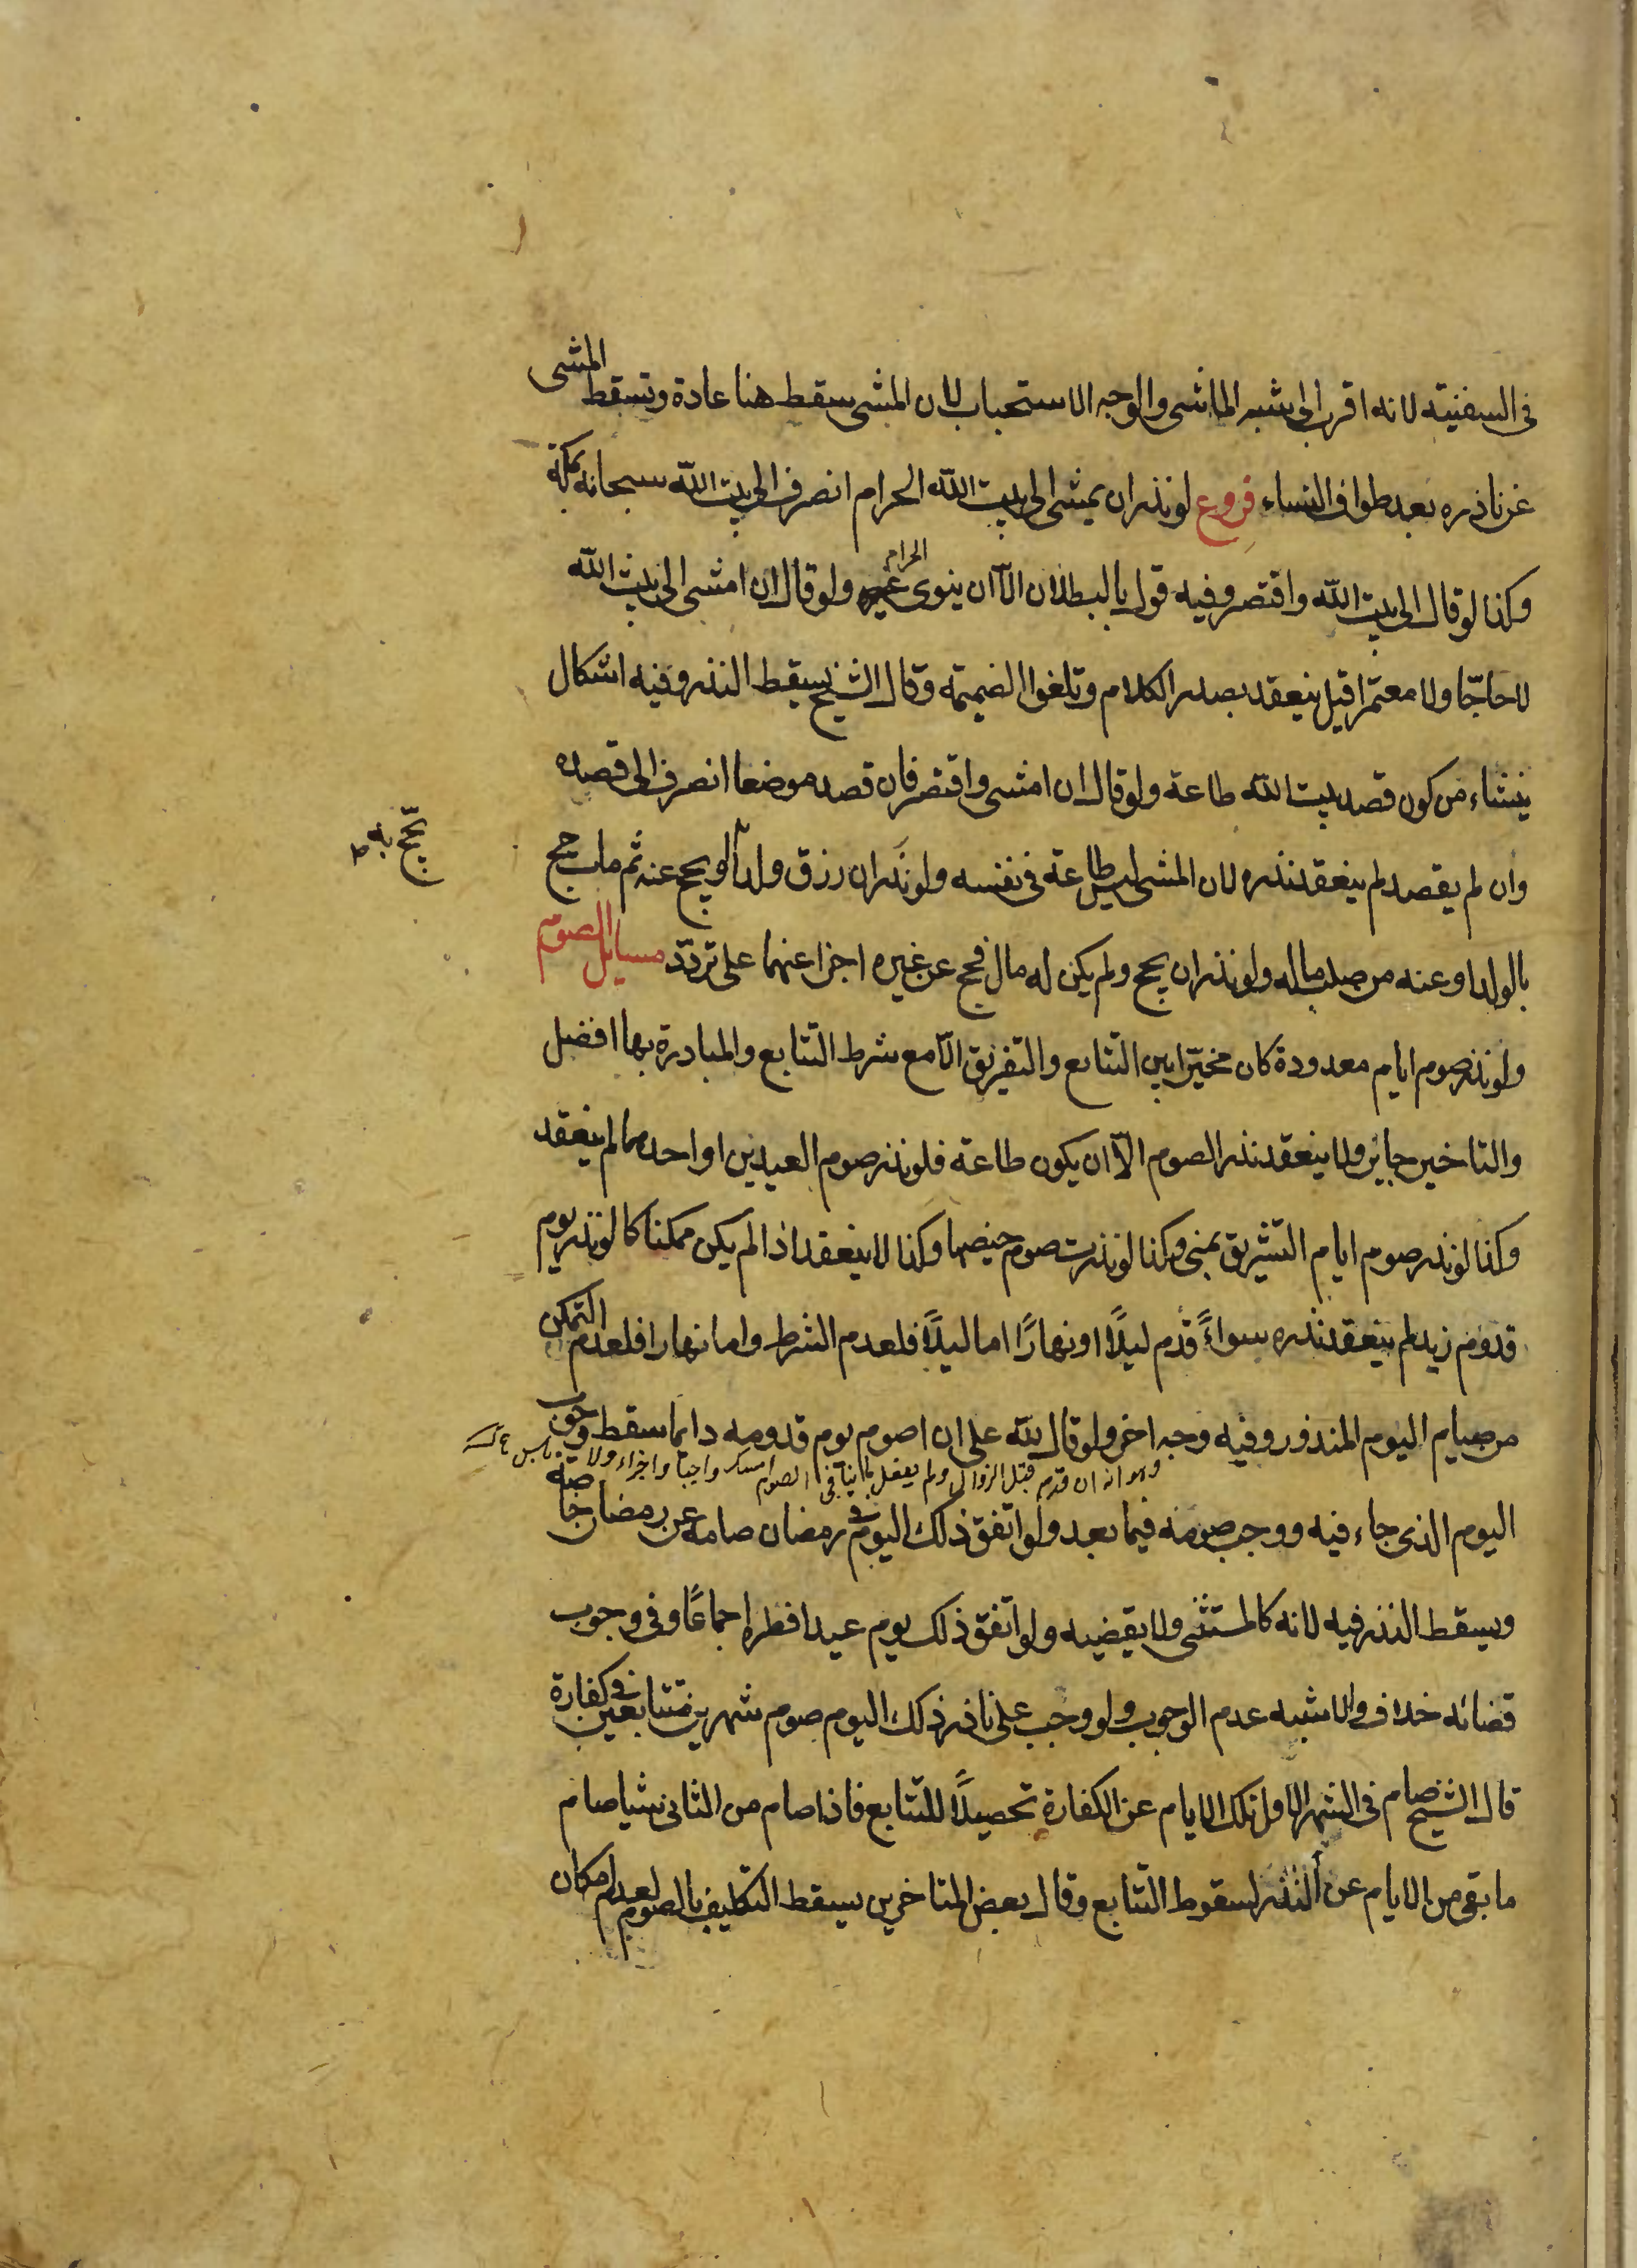 في السفينة لانه اقرب الى شبه الماشى والوجه الاستحباب لان المشى سقط هنا عادة وتسقط المشى
عن ناذره بعد طواف النساء فروع لو نذر ان يمشى الى بيت الله الحرام انصرف الى بيت الله سبحانه بمكة
وكذا لو قال الى بيت الله واقتصر وفيه قول بالبطلان الّا ان ينوى الحرام ولو قال ان امشى الى بيت الله
لا حاجّا ولا معتمرا قيل ينعقد بصدر الكلام وتلغوا الضميمة وقال الشيخ يسقط النذر وفيه اشكال
ينشاء من كون قصد بيت الله طاعة ولو قال ان امشى واقتصر فان قصد موضعا انصرف الى قصده
وان لم يقصد لم ينعقد نذره لان المشى ليس طاعة في نفسه ولو نذر ان رزق ولدا او يحج عنه ثم مات حج
يحّج به ط
بالولد او عنه من صلب ماله ولو نذر ان يحج ولم يكن له مال فحج عن غيره اجزا عنهما على تردّد مسايل الصوم
ولو نذر صوم ايام معدودة كان مخيّرا بين التتابع والتفريق الّا مع شرط التتابع والمبادرة بها افضل
والتاخير جايز ولا ينعقد نذر الصوم الّا ان يكون طاعة فلو نذر صوم العيدين او احدهما لم ينعقد
وكذا لو نذر صوم ايام التشريق بمنى وكذا لو نذرت صوم حيضها وكذا لا ينعقد اذا لم يكن ممكنا كما لو نذر يوم
قدوم زيد لم ينعقد نذره سواءً قدم ليلًا او نهارًا اما ليلًا فلعدم الشرط واما نهارا فلعدم التمكن
من صيام اليوم المنذور وفيه وجه اخر ولو قال لله على ان اصوم يوم قدومه دايما سقط وجوب
وهو انه ان قدم قبل الزوال ولم يفعل ما ينافى الصوم امسك واجبا واجزاء ولا باس
اليوم الذى جاء فيه ووجب صومه فيما بعد ولو اتفق ذلك اليوم في رمضان صامه عن رمضان خاصّة
ويسقط النذر فيه لانه كالمستثنى ولا يقضيه ولو اتفق ذلك يوم عيد افطر اجماعًا وفى وجوب
قضائه خلاف والاشبه عدم الوجوب ولو وجب على ناذر ذلك اليوم صوم شهرين متتابعين في كفارة
قال الشيخ صام في الشهر الاول تلك الايام عن الكفارة تحصيلًا للتتابع فاذا صام من الثانى شيا صام
ما بقى من الايام عن النذر لسقوط التتابع وقال بعض المتاخرين يسقط التكليف بالصوم لعدم امكان